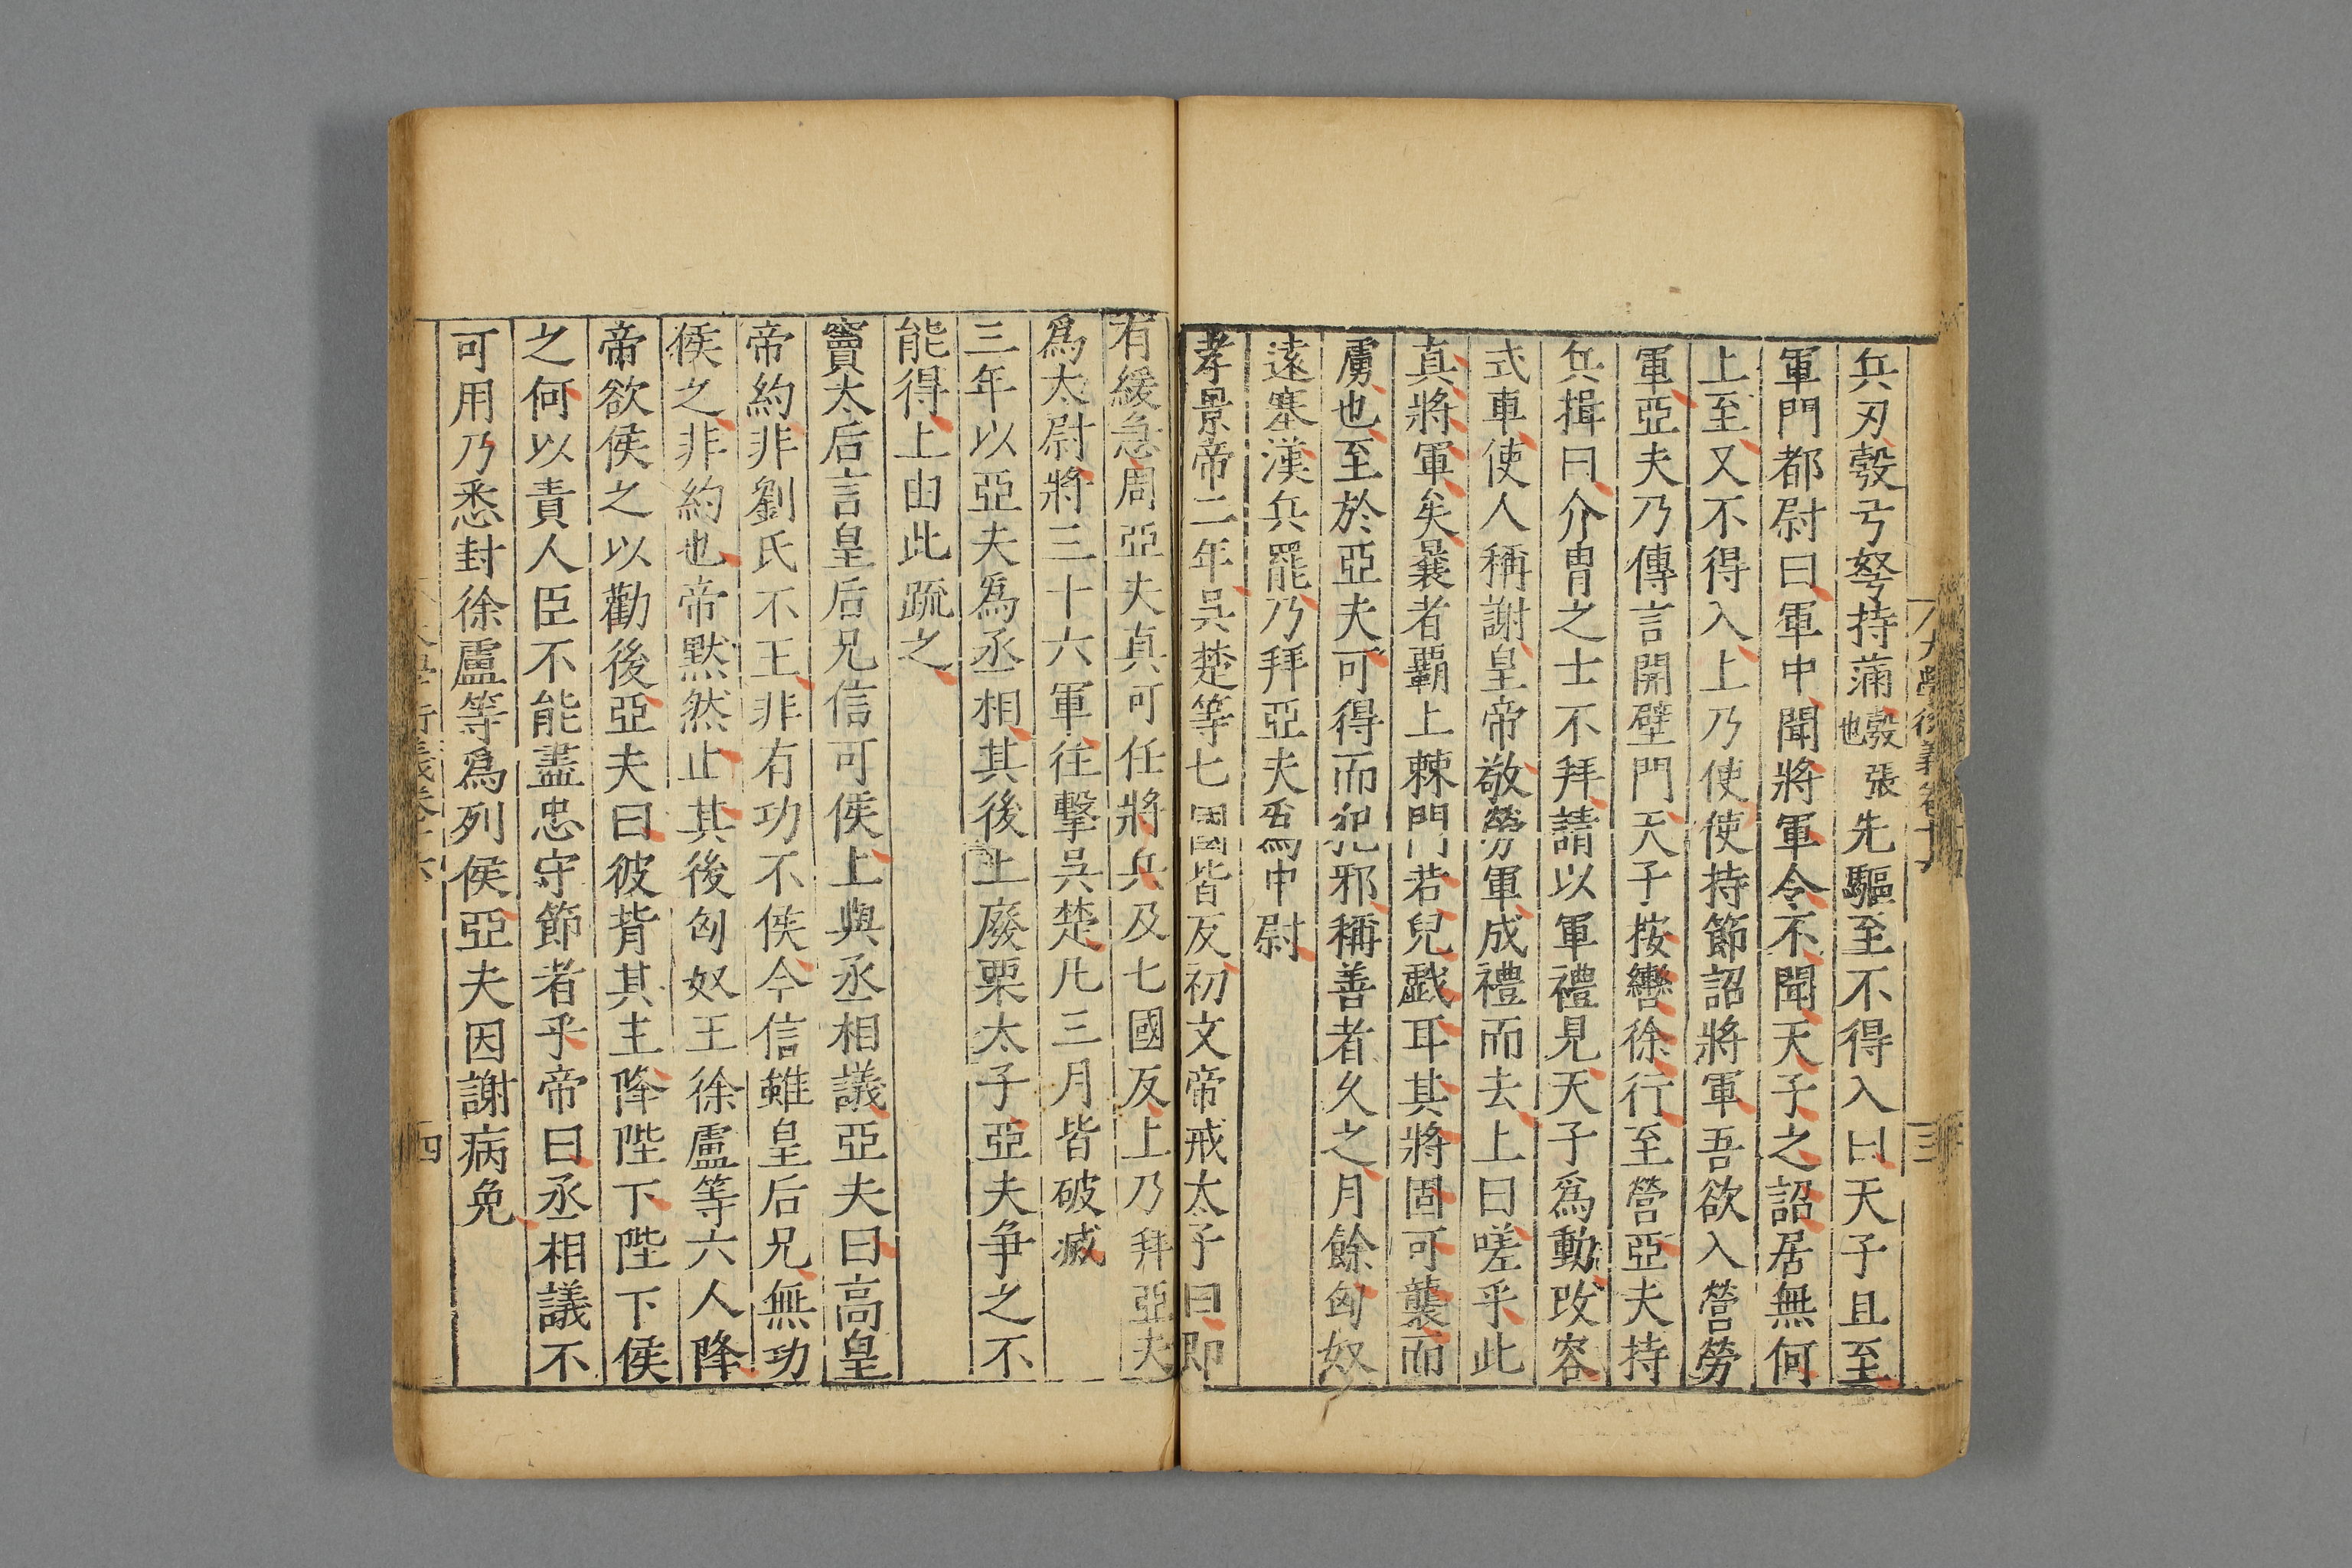 兵刃彀弓弩持蒲彀張也先驅至不得入曰天子且至
軍門都尉曰軍中聞將軍令不聞天子之詔居無何
上至又不得入上乃使使持節詔將軍吾欲入營勞
軍亞夫乃傳言開壁門天子按轡徐行至營亞夫持
兵揖曰介胄之士不拜請以軍禮見天子爲動改容
式車使人稱謝皇帝敬勞軍成禮而去上曰嗟乎此
真將軍矣曩者霸上棘門若兒戯耳其將固可襲而
虜也至於亞夫可得而犯邪稱善者久之月餘匈奴
遠塞漢兵罷乃拜亞夫爲中尉
孝景帝二年吳楚等七國皆反初文帝戒太子曰即
有緩急周亞夫真可任將兵及七國反上乃拜亞夫
爲太尉將三十六軍往擊吳楚凡三月皆破滅
三年以亞夫爲丞相其後上廢栗太子亞夫爭之不
能得上由此疏之
竇太后言皇后兄信可侯上與丞相議亞夫曰高皇
帝約非劉氏不王非有功不侯今信雖皇后兄無功
侯之非約也帝默然止其後匈奴王徐盧等六人降
帝欲侯之以勸後亞夫曰彼背其主降陛下陛下侯
之何以責人臣不能盡忠守節者乎帝曰丞相議不
可用乃悉封徐盧等爲列侯亞夫因謝病免
四